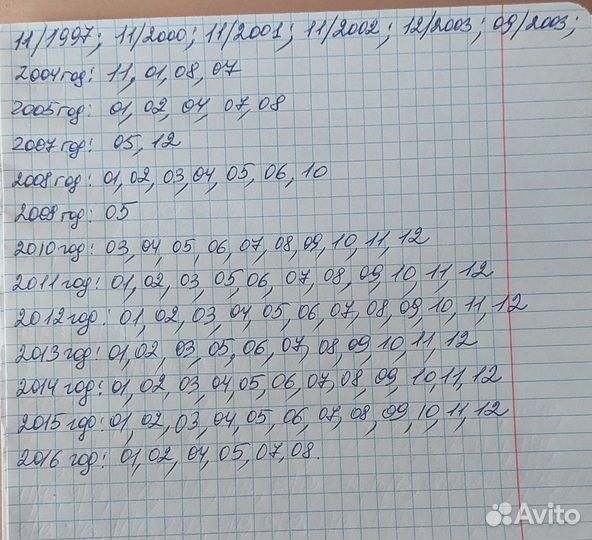 11/1997; 11/2000; 11/2001; 11/2002; 12/2003; 09/2003;
2004 год: 11, 01, 08, 07
2005 год: 01, 02, 04, 07, 08
2007 год: 05, 12
2008 год: 01, 02, 03, 04, 05, 06, 10
2009 год: 05
2010 год: 03, 04, 05, 06, 07, 08, 09, 10, 11, 12
2011 год: 01, 02, 03, 05, 06, 07, 08, 09, 10, 11, 12
2012 год: 01, 02, 03, 04, 05, 06, 07, 08, 09, 10, 11, 12
2013 год: 01, 02, 03, 05, 06, 07, 08, 09, 10, 11, 12
2014 год: 01, 02, 03, 04, 05, 06, 07, 08, 09, 10, 11, 12
2015 год: 01, 02, 03, 04, 05, 06, 07, 08, 09, 10, 11, 12
2016 год: 01, 02, 04, 05, 07, 08.
Avito